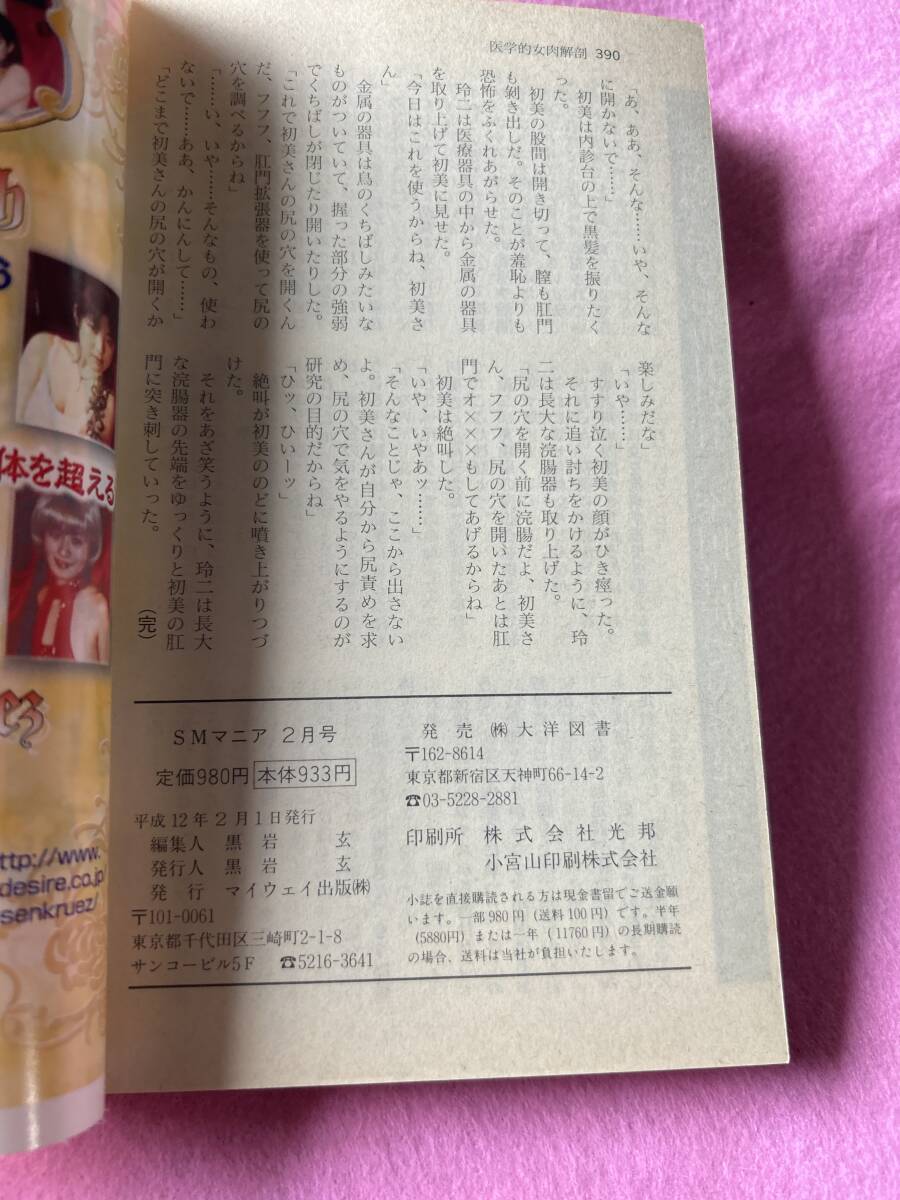 医学的女肉解剖 390
「あ、ああ、そんな……いや、そんな
に開かないで……」
初美は内診台の上で黒髪を振りたく
った。
初美の股間は開き切って、膣も肛門
も剝き出しだ。そのことが羞恥よりも
恐怖をふくれあがらせた。
玲二は医療器具の中から金属の器具
を取り上げて初美に見せた。
「今日はこれを使うからね、初美さ
ん」
金属の器具は鳥のくちばしみたいな
ものがついていて、握った部分の強弱
でくちばしが閉じたり開いたりした。
「これで初美さんの尻の穴を開くん
だ、フフフ、肛門拡張器を使って尻の
穴を調べるからね」
「……い、いや……そんなもの、使わ
ないで……ああ、かんにんして……」
「どこまで初美さんの尻の穴が開くか
楽しみだな」
「いや……」
すすり泣く初美の顔がひき痙った。
それに追い討ちをかけるように、玲
二は長大な浣腸器も取り上げた。
「尻の穴を開く前に浣腸だよ、初美さ
ん、フフフ、尻の穴を開いたあとは肛
門でオ×××もしてあげるからね」
初美は絶叫した。
「いや、いやあッ……」
「そんなことじゃ、ここから出さない
よ。初美さんが自分から尻責めを求
め、尻の穴で気をやるようにするのが
研究の目的だからね」
「ひッ、ひいーッ」
絶叫が初美ののどに噴き上がりつづ
けた。
それをあざ笑うように、玲二は長大
な浣腸器の先端をゆっくりと初美の肛
門に突き刺していった。
（完）
SMマニア 2月号
定価980円 本体933円
平成12年2月1日発行
編集人 黒岩 玄
発行人 黒岩 玄
発行 マイウェイ出版㈱
〒101-0061
東京都千代田区三崎町2-1-8
サンコービル5F ☎5216-3641
発売 ㈱大洋図書
〒162-8614
東京都新宿区天神町66-14-2
☎03-5228-2881
印刷所 株式会社光邦
小宮山印刷株式会社
小誌を直接購読される方は現金書留でご送金願
います。一部980円（送料100円）です。半年
（5880円）または一年（11760円）の長期購読
の場合、送料は当社が負担いたします。
体を超える
ttp://www.
desire.co.jp
senkruez/